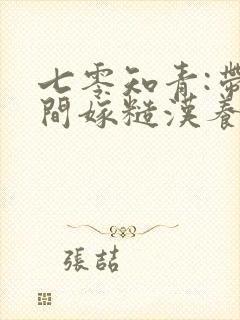 七零知青:帶
間嫁糙漢養
張喆